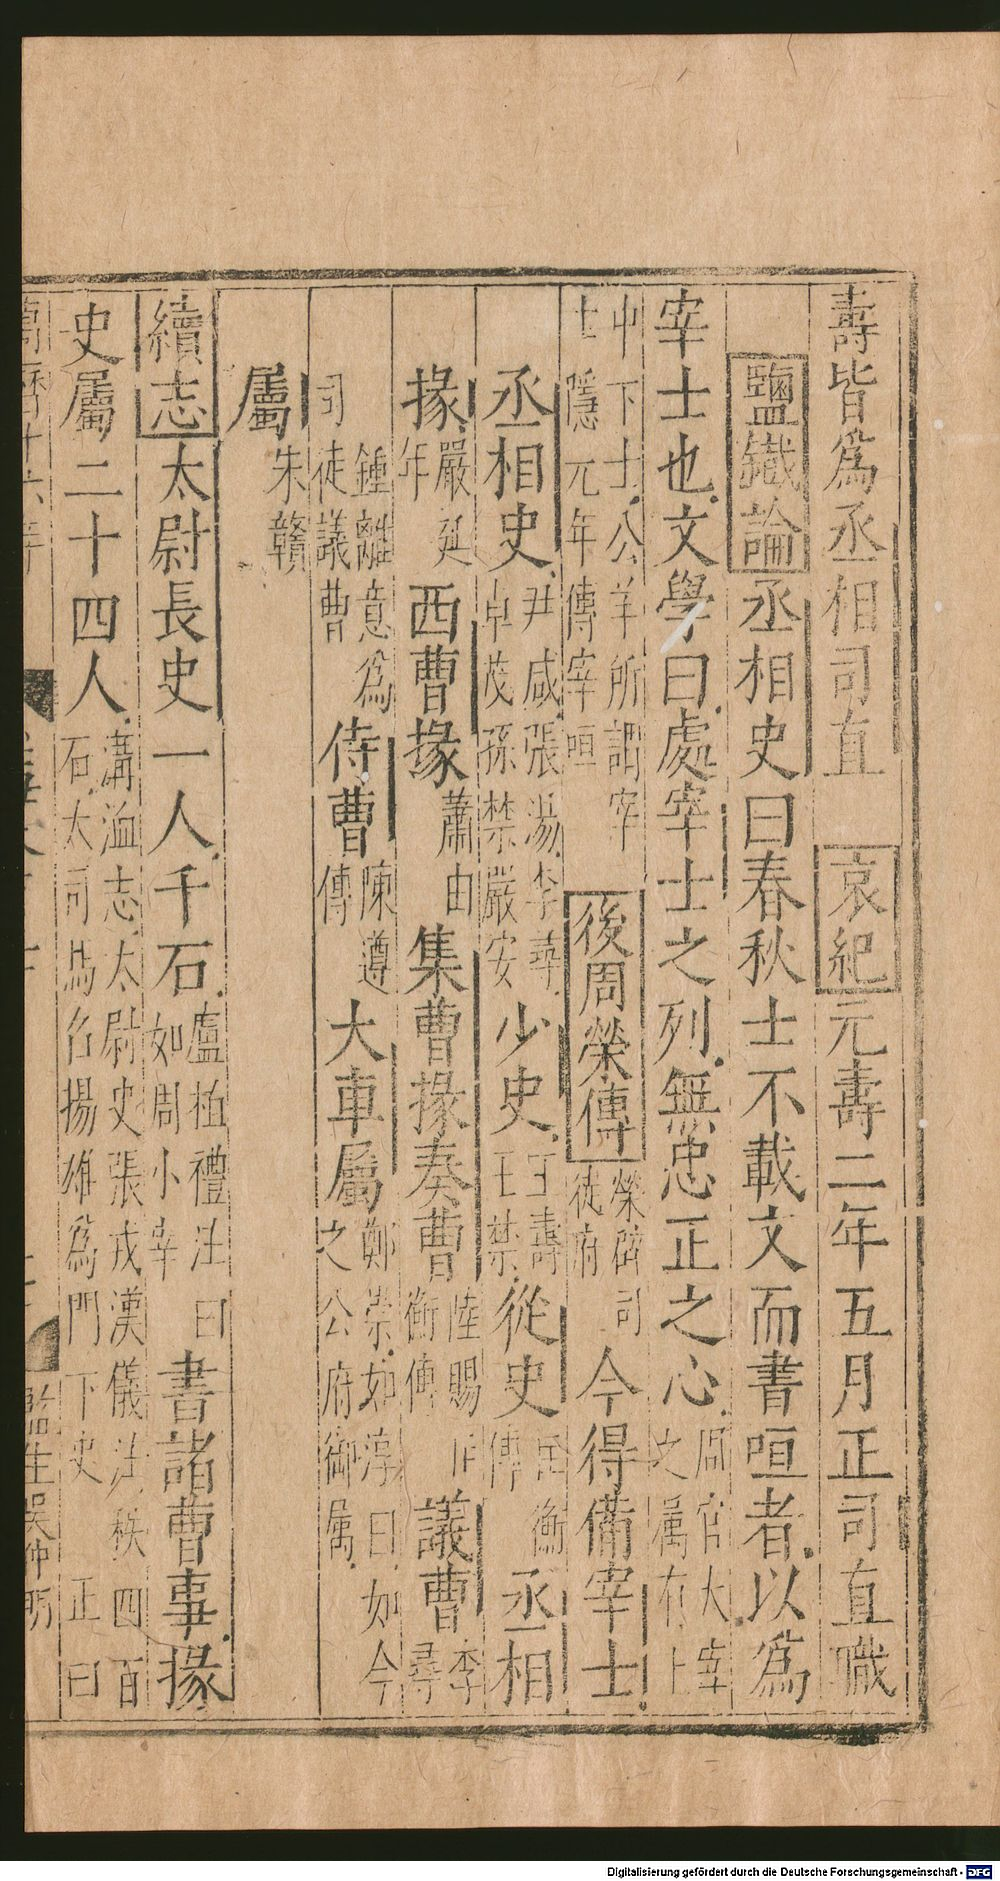 壽皆爲丞相司直 哀紀元壽二年五月正司直職
鹽鐵論丞相史曰春秋士不載文而書咺者以爲
宰士也文學曰處宰士之列無忠正之心周官大宰之属有上
中下士公羊所謂宰士隱元年傳宰咺 後周榮傳榮辟司徒府今得備宰士
丞相史尹咸張湯李華卓茂孫禁嚴安少史王壽王禁從史匡衡傳丞相
掾嚴延年西曹掾蕭由集曹掾奏曹陸賜衡傳議曹李尋
鍾離意爲司徒議曹侍曹陳遵傳大車屬鄭崇如淳曰如今之公府御属
屬朱贛
續志太尉長史一人千石盧植禮注曰如周小宰書諸曹事掾
史屬二十四人溝洫志太尉史張戎漢儀注秩四百石太司馬召揚雄爲門下史正曰
監生吳仲
Digitalisierung gefördert durch die Deutsche Forschungsgemeinschaft - DFG